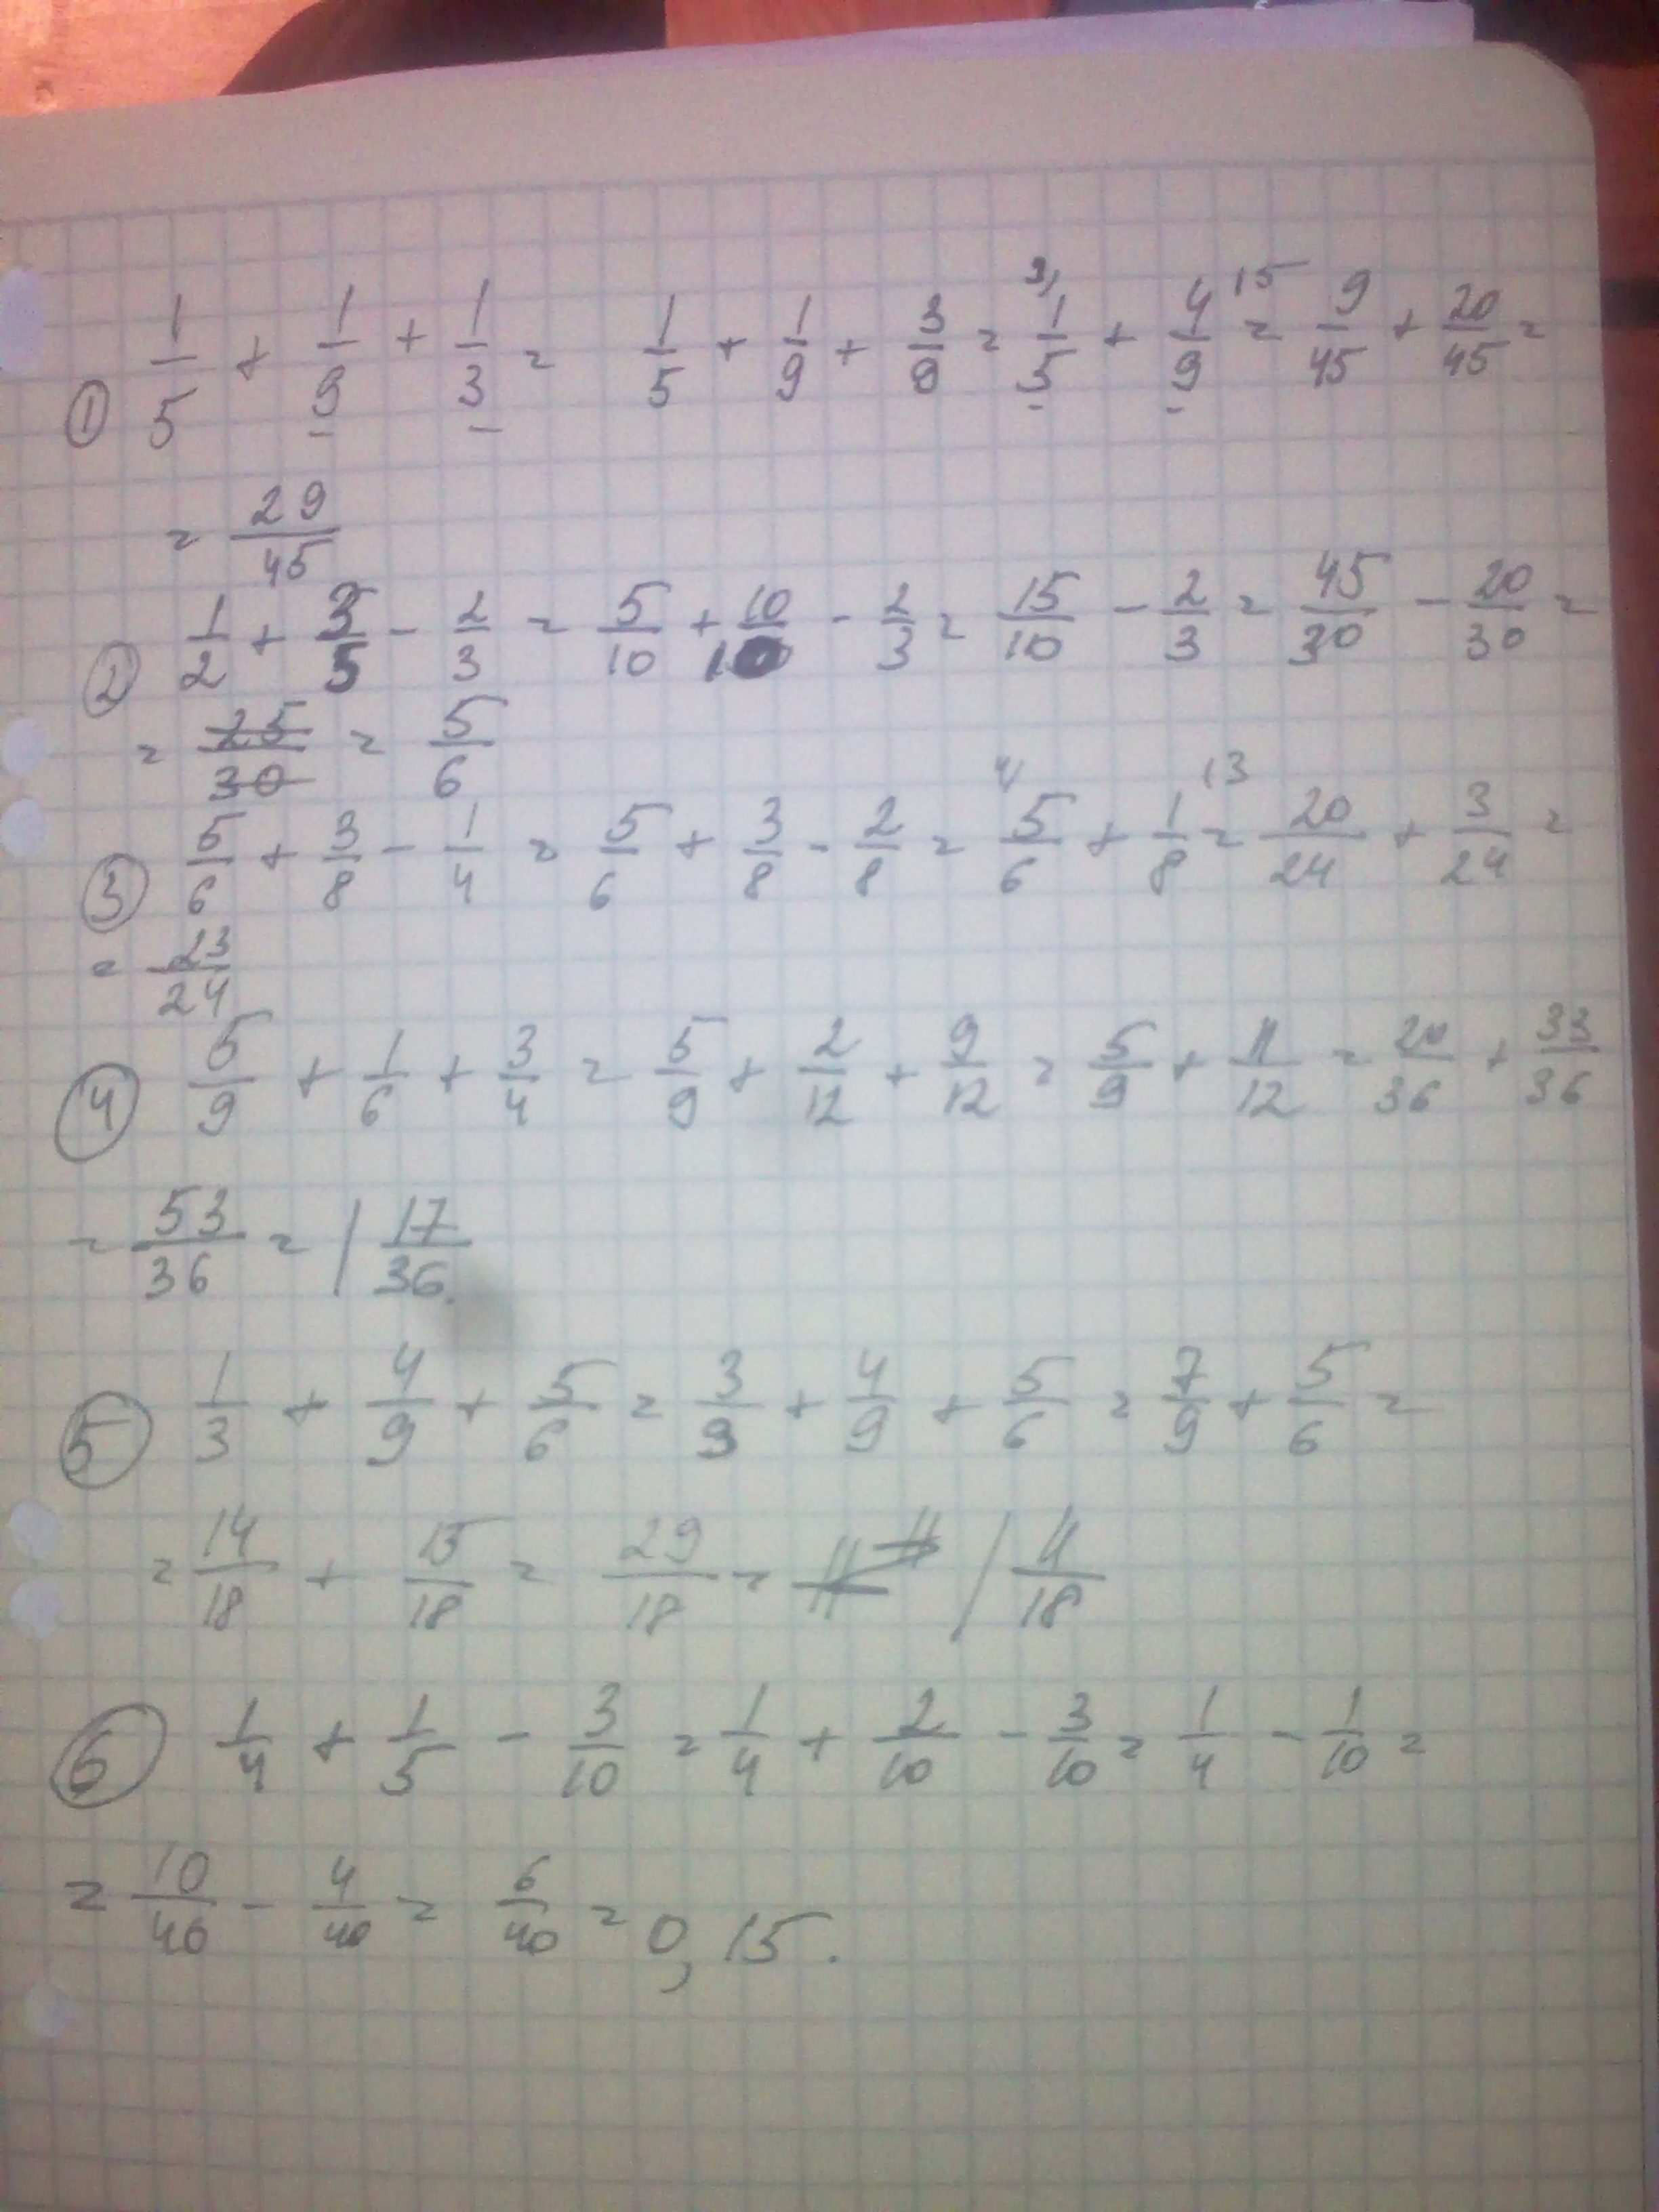 ① 1/5 + 1/9 + 1/3 = 1/5 + 1/9 + 3/9 = 9/ 1/5 + 4/9 /5 = 9/45 + 20/45 =
= 29/45
② 1/2 + 3/5 - 2/3 = 5/10 + 10/10 - 2/3 = 15/10 - 2/3 = 45/30 - 20/30 =
= 25/30 = 5/6
③ 5/6 + 3/8 - 1/4 = 5/6 + 3/8 - 2/8 = 4/ 5/6 + 1/8 /3 = 20/24 + 3/24 =
= 23/24
④ 5/9 + 1/6 + 3/4 = 5/9 + 2/12 + 9/12 = 5/9 + 11/12 = 20/36 + 33/36
= 53/36 = 1 17/36.
⑤ 1/3 + 4/9 + 5/6 = 3/9 + 4/9 + 5/6 = 7/9 + 5/6 =
= 14/18 + 15/18 = 29/18 = 1 11/18
⑥ 1/4 + 1/5 - 3/10 = 1/4 + 2/10 - 3/10 = 1/4 - 1/10 =
= 10/40 - 4/40 = 6/40 = 0,15.